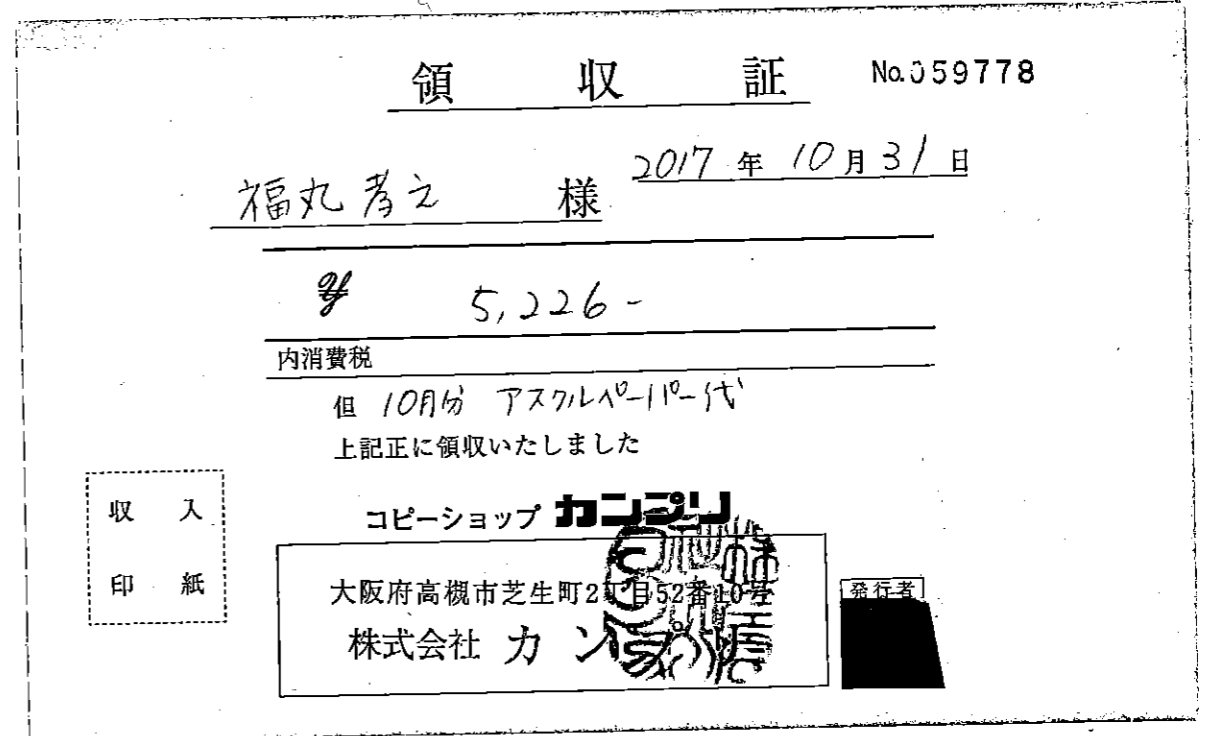 領収証 No.059778
2017年10月31日
福丸孝之 様
¥ 5,226-
内消費税
但 10月分 アスクルペーパー代
上記正に領収いたしました
収入
印紙
コピーショップ カンプリ
大阪府高槻市芝生町2丁目52番10号
株式会社 カンプリ
発行者